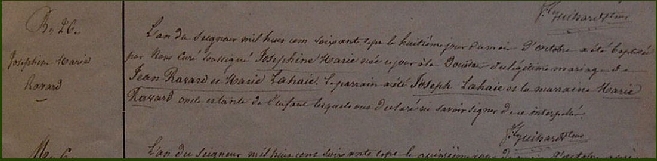 Bp 26.
Josephine Marie
Ravard
J Guihard Ptre
L'an du Seigneur mil huit cent soixante sept le huitième jour du mois d'octobre a été baptisée
par Nous Curé soussigné Joséphine Marie née ce jour de légitime mariage de
Jean Ravard et Marie Lahaie. Le parrain a été Joseph Lahaie et la marraine Marie
Ravard oncle et tante de l'enfant lesquels ont déclaré ne savoir signer de ce interpellés.
J Guihard Ptre
L'an du Seigneur mil huit cent soixante sept le quinzième jour d'octobre